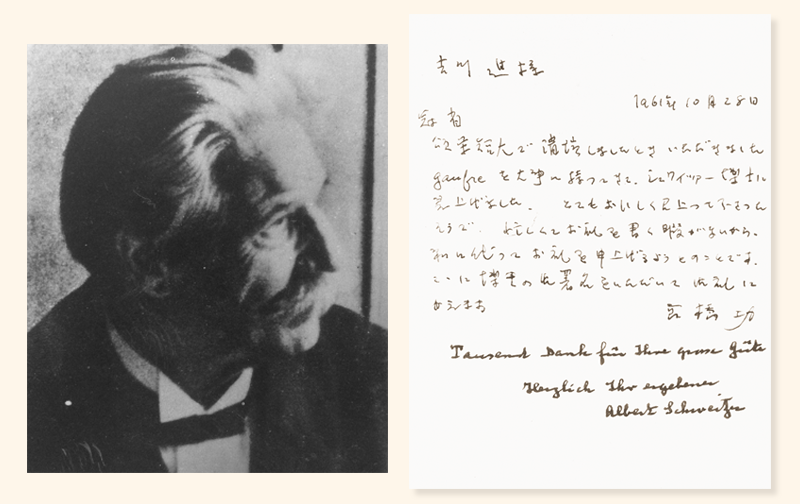 吉川 進様
1961年10月28日
冠省
短大で講演しましたときいただきました
gaufre を大事に持ってきて、シュワイツァー博士に
差上げました。 とてもおいしく召上って下さった
そうで、忙しくてお礼を書く暇がないから、
私に代ってお礼を申上げるようとのことです。
ここに博士の御署名をいただいて御礼に
かえます
高橋 功
Tausend Dank für Ihre grosse Güte
Herzlich Ihr ergebener
Albert Schweitzer